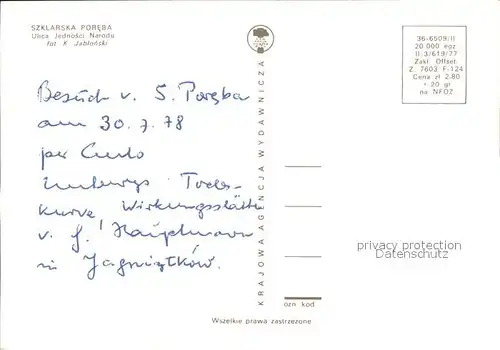 SZKLARSKA PORĘBA
Ulica Jedności Narodu
fot. K. Jabłoński
36-6509/II
20 000 egz
II.3/619/77
Zakł. Offset.
Z. 7603 F-124
Cena zł 2.80
+ 20 gr
na NFOZ
Besuch v. S. Poręba
am 30.7.78
per Auto
unterwegs Todes-
kurve Wirkungsstätte
v. G. Hauptmann
in Jagniątków.
KRAJOWA AGENCJA WYDAWNICZA
privacy protection
Datenschutz
ozn kod.
Wszelkie prawa zastrzeżone